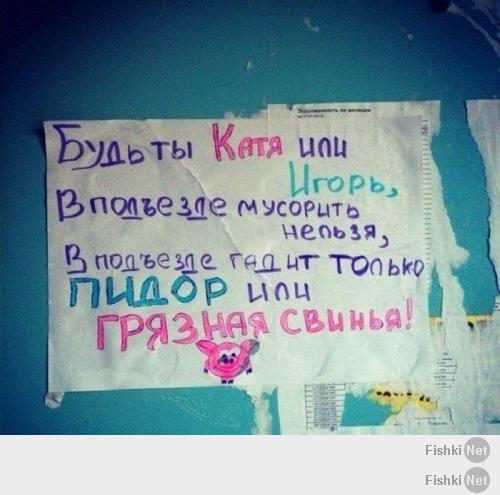 Задолженность по месяцам
Будь ты Катя или
Игорь,
В подъезде мусорить
нельзя,
В подъезде гадит только
ПИДОР или
ГРЯЗНАЯ СВИНЬЯ!
Fishki Net
Fishki Net